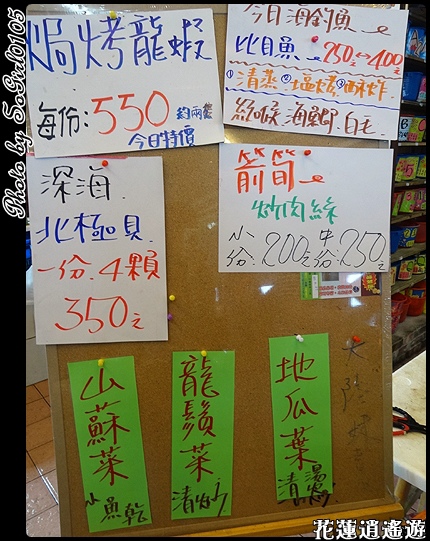 焗烤龍蝦
每份:550 約兩隻
今日特價
今日海釣魚
比目魚 250元↔400元
①清蒸②塩烤③酥炸
深海
北極貝
一份.4顆
350元
箭筍
炒肉絲
小份.200元 中份.250元
山蘇菜
小魚乾
龍鬚菜
清炒
地瓜葉
清燙
Photo by SoGird0105
花蓮逍遙遊